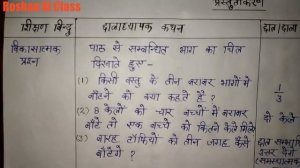 Roshan Al Class
प्रस्तुतीकरण
शिक्षण बिन्दु
छात्राध्यापक कथन
छात्र/छात्रा
विकासात्मक प्रश्न
पाठ से सम्बन्धित भाग का चित्र
दिखाते हुए-
(1) किसी वस्तु के तीन बराबर भागों में
बाँटने को क्या कहते हैं ?
1/3
(2) 8 केलों को चार बच्चों में बराबर
बाँटे तो एक बच्चे को कितने केले मिलेंगे
दो केले
(3) बारह टॉफियों को तीन जगह कैसे
बाँटेंगे ?